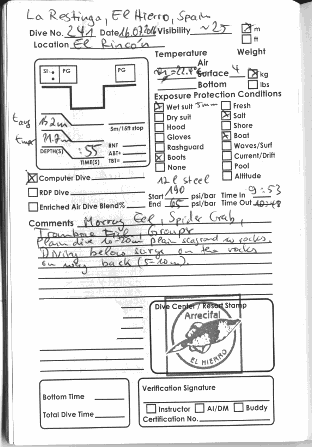 La Restinga, El Hierro, Spain
Dive No. 241 Date 16.07.2016 Visibility ~25 m
ft
Location El Rincón
Temperature
Weight
Air
Surface 4 kg
Bottom lbs
SI PG PG
Exposure Protection Conditions
Wet suit 5mm Fresh
Dry suit Salt
Hood Shore
Gloves Boat
Rashguard Waves/Surf
Boots Current/Drift
None Pool
Altitude
5m/15ft stop
DEPTH(S) :55 RNT
ABT+
TIME(S) TBT=
Computer Dive
RDP Dive
Enriched Air Dive Blend%
12l steel
Start 190 psi/bar Time In 9:53
End 65 psi/bar Time Out 10:48
Comments Morray Eel, Spider Crab,
Trombone Fish, Groupr
Plain dive 10-20m plain seafood w rocks.
Diving below surge on the rocks
on way back (5-10m).
Dive Center / Resort Stamp
Arrecifal
EL HIERRO
Bottom Time
Total Dive Time
Verification Signature
Instructor AI/DM Buddy
Certification No.